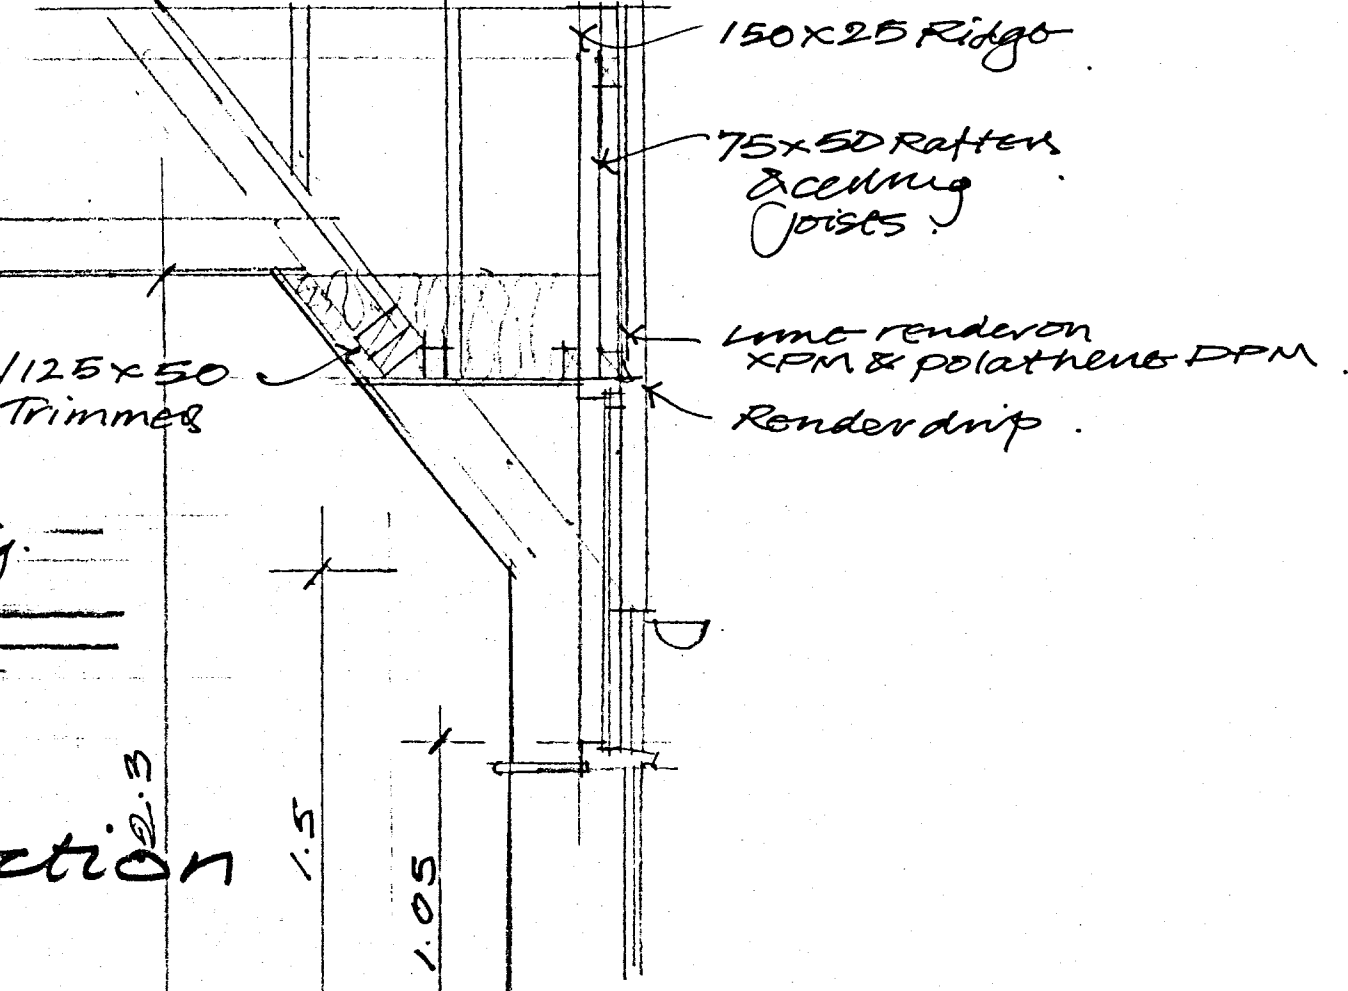 150x25 Ridge
75x50 Rafters
& ceiling
joists.
Lime render on
XPM & polathene DPM.
Render drip.
/125x50
Trimmer
g.
2.3
1.5
1.05
ction